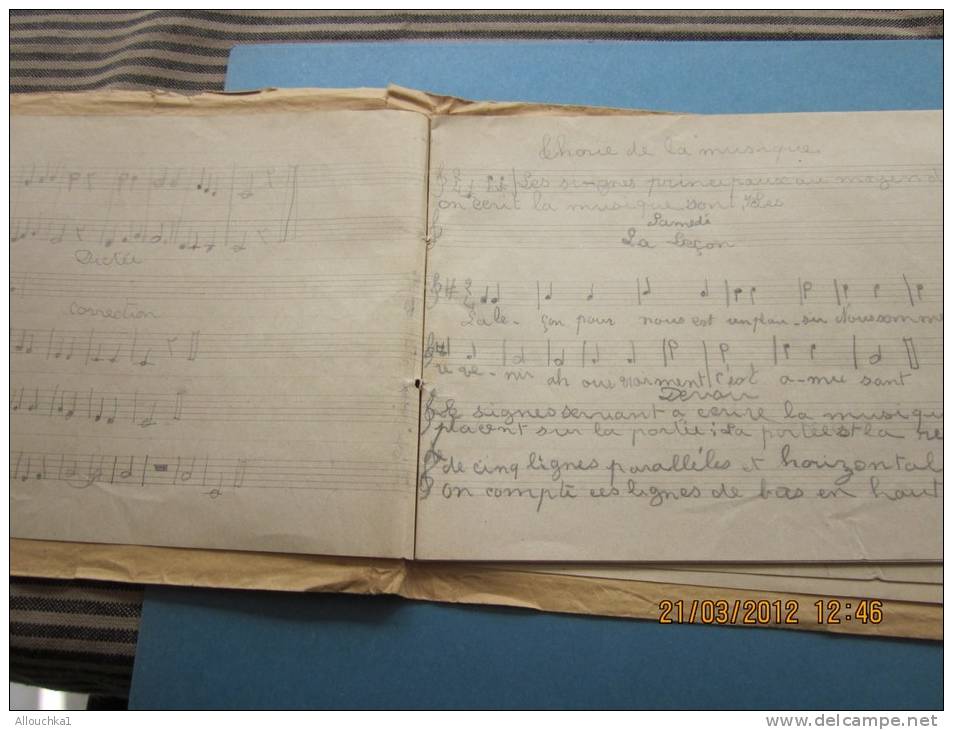 Dictée
correction
thorie de la musique
Les si-gnes principaux au mogen d
on écrit la musique sont, les
Samedi
La Leçon
La le- çon pour nous est un plai- sir Nous somme
re ve- nir ah oui vraiment c'est a-mu sant
Devoir
Le signes servant a ecrire la musiqu
placent sur la portée: La portée est la re
de cinq lignes parallèles et horizontal
on compte ces lignes de bas en haut
21/03/2012 12:46
Allouchka1
www.delcampe.net